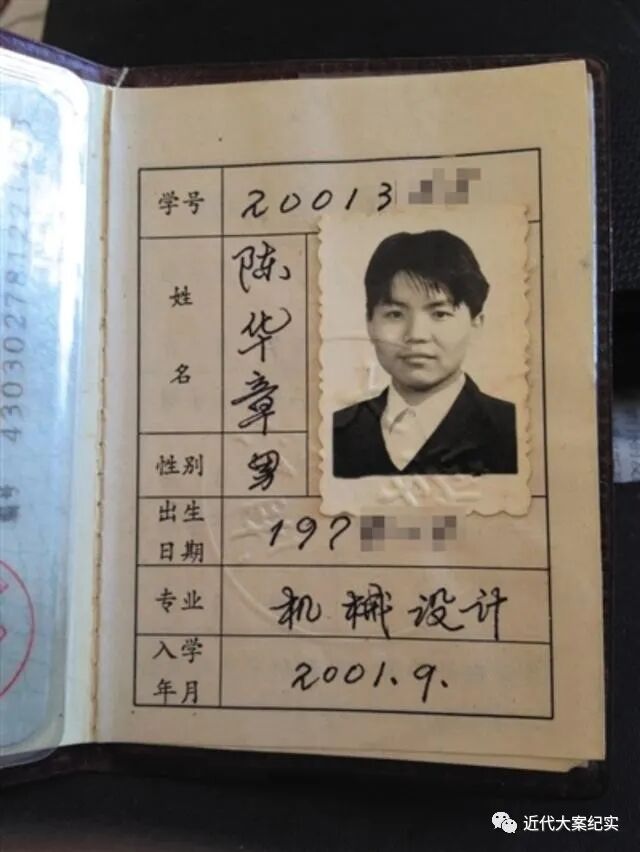 学号 20013
姓名 陈华章
性别 男
出生日期 197
专业 机械设计
入学年月 2001.9.
编号 43030278122
近代大案纪实